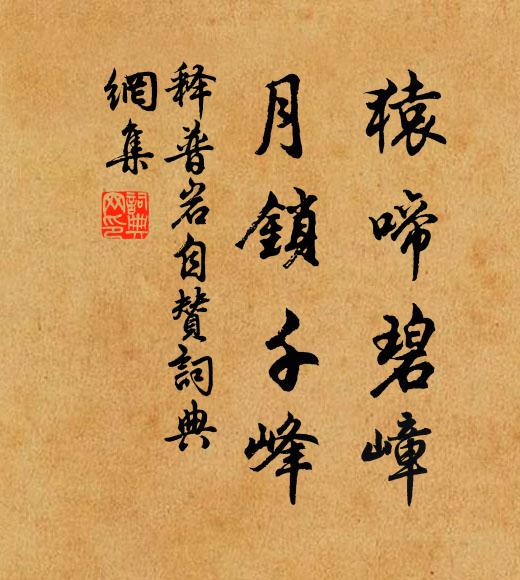 猿啼碧嶂
月鎖千峰
释普岩自赞詞典
網集
詞典
网印